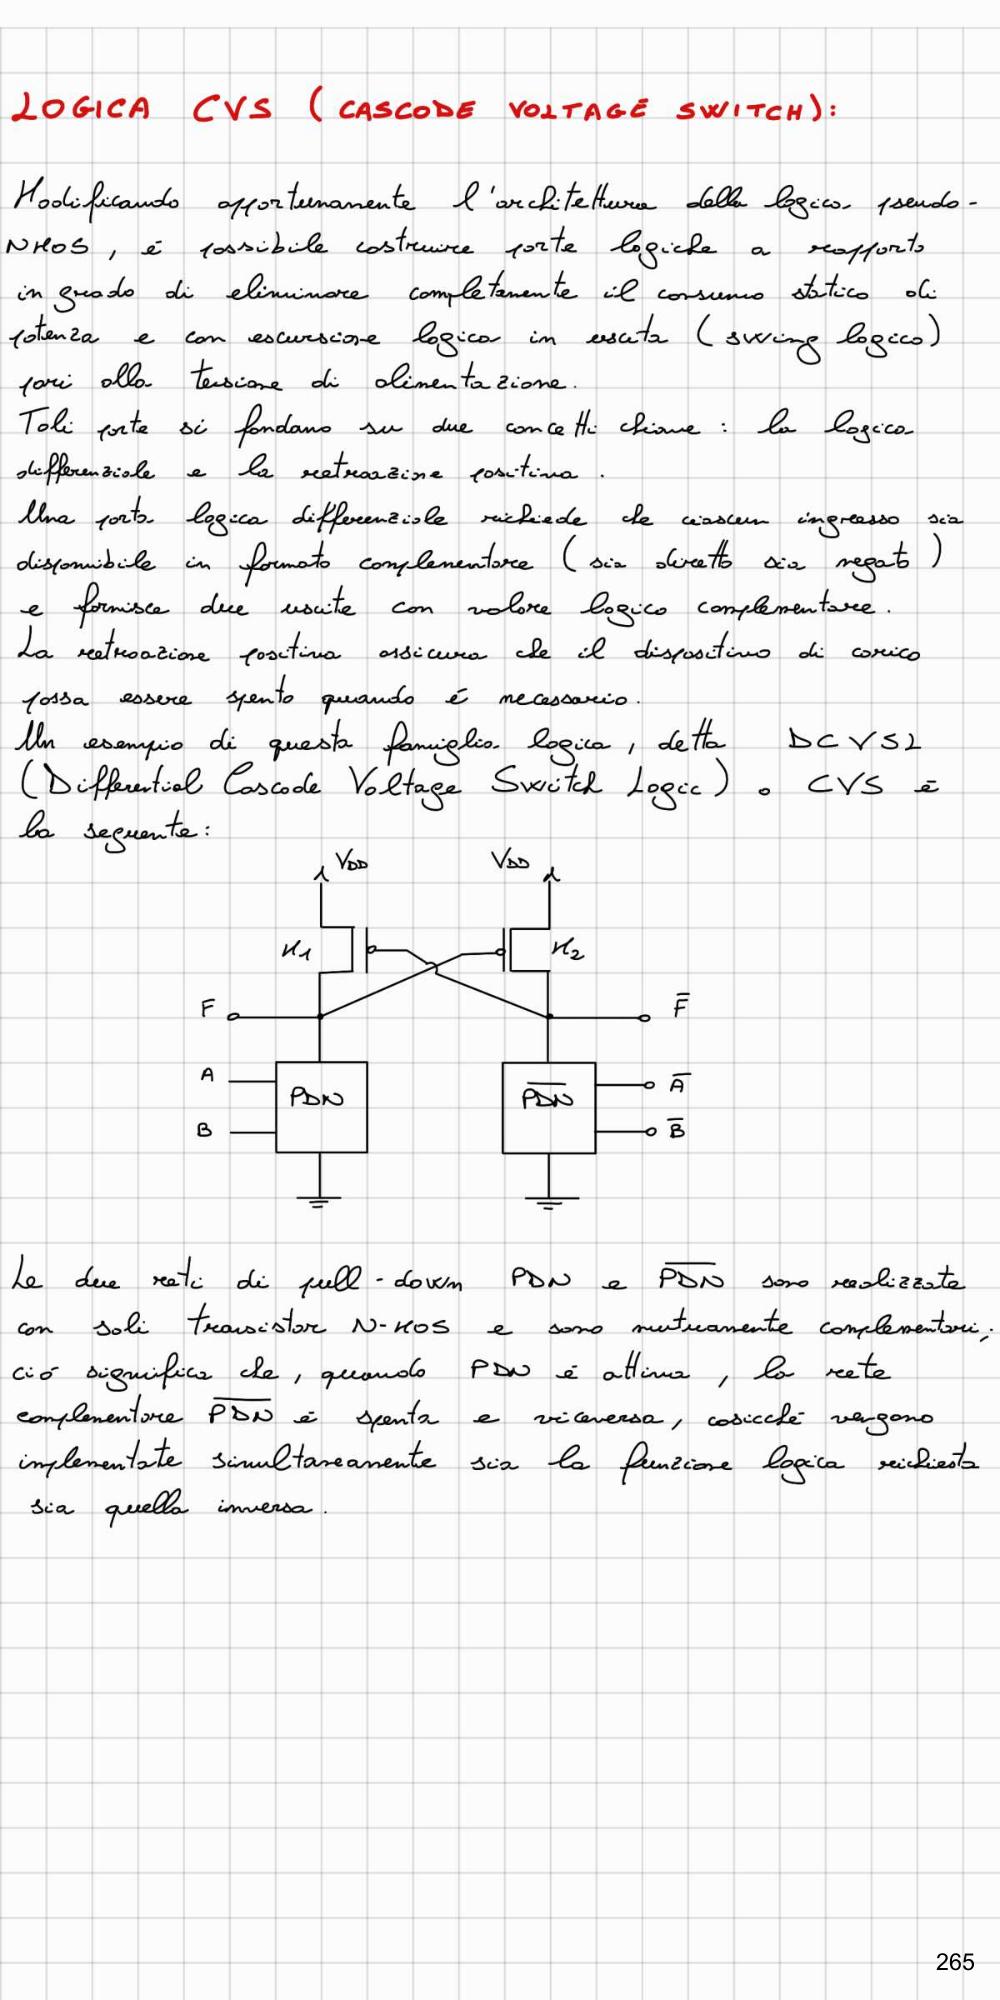 LOGICA CVS (CASCODE VOLTAGE SWITCH):
Modificando opportunamente l'architettura della logica pseudo-
NMOS, é possibile costruire porte logiche a rapporto
in grado di eliminare completamente il consumo statico di
potenza e con escursione logica in uscita (swing logico)
pari alla tensione di alimentazione.
Tali porte si fondano su due concetti chiave: la logica
differenziale e la retroazione positiva.
Una porta logica differenziale richiede che ciascun ingresso sia
disponibile in formato complementare (sia diretto sia negato)
e fornisce due uscite con valore logico complementare.
La retroazione positiva assicura che il dispositivo di carico
possa essere spento quando é necessario.
Un esempio di questa famiglia logica, detta DCVSL
(Differential Cascode Voltage Switch Logic) o CVS é
la seguente:
VDD VDD
M1 M2
F F̅
A PDN P̅D̅N̅ A̅
B B̅
Le due reti di pull-down PDN e P̅D̅N̅ sono realizzate
con soli transistor N-MOS e sono mutuamente complementari;
ció significa che, quando PDN é attiva, la rete
complementare P̅D̅N̅ é spenta e viceversa, cosicché vengono
implementate simultaneamente sia la funzione logica richiesta
sia quella inversa.
265